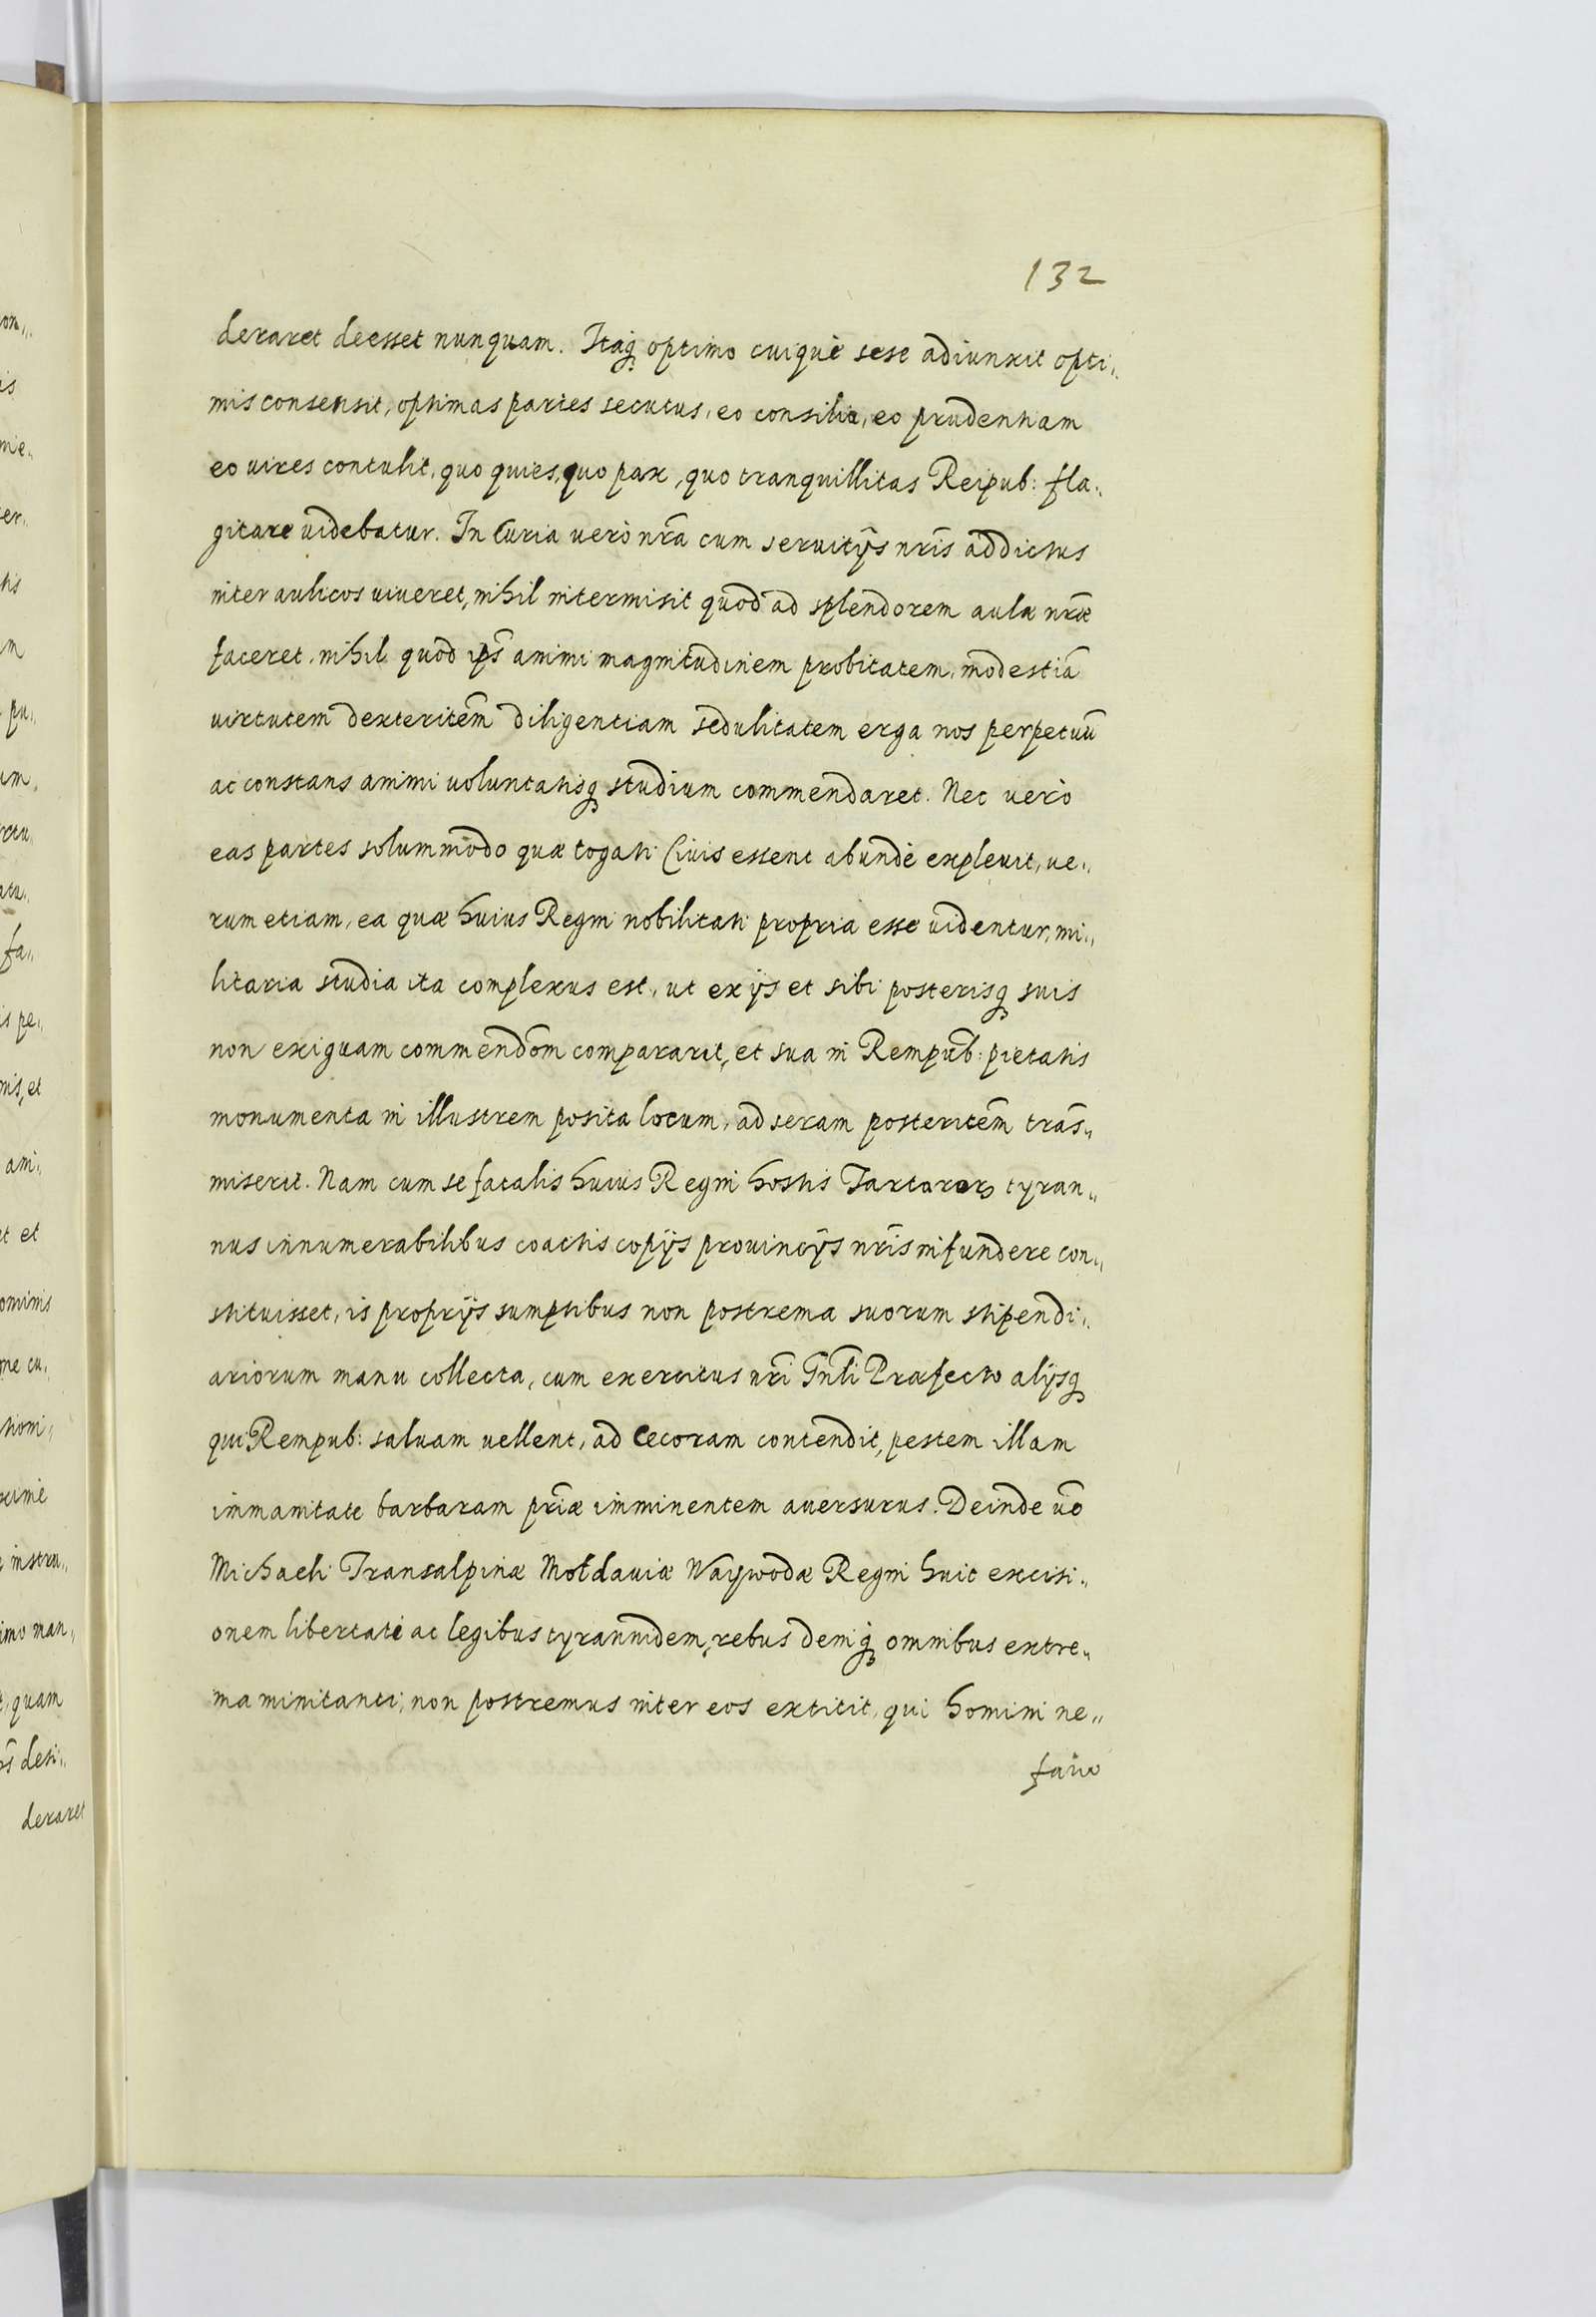 132
deraret deesset nunquam. Itaq optimo cuiquè sese adiunxit opti„
mis consensit, optimas partes secutus, eo consilia, eo prudentiam
eo uires contulit, quo quies, quo pax, quo tranquillitas Reipub: fla„
gitare uidebatur. In Curia uerò nrã cum seruitijs nrĩs addictus
inter aulicos uiueret, nihil intermisit quod ad splendorem aulæ nræ̃
faceret, nihil quod ips̃ animi magnitudinem probitatem, modestiã
uirtutem dexteritẽm diligentiam sedulitatem erga nos perpetuũ
ac constans animi uoluntatisq studium commendaret. Nec uerò
eas partes solummodo quæ togati Ciuis essent abundè expleuit, ue„
rum etiam, ea quæ huius Regni nobilitati propria esse uidentur, mi„
litaria studia ita complexus est, ut ex ijs et sibi posterisq suis
non exiguam commendõm compararit, et sua in Rempub: pietatis
monumenta in illustrem posita locum, ad seram posteritẽm trãs„
miserit. Nam cum se fatalis huius Regni hostis Tartaror tyran„
nus innumerabilibus coactis copijs prouincijs nrĩs infundere con„
stituisset, is proprijs sumptibus non postrema suorum stipendi„
ariorum manu collecta, cum exercitus nrĩ Gnlĩ Præfecto alijsq
qui Rempub: saluam uellent, ad Cecoram contendit, pestem illam
immanitate barbaram prĩæ imminentem auersurus. Deinde uõ
Michaeli Transalpinæ Moldauiæ Waywodæ Regni huic excisi„
onem libertati ac legibus tyrannidem, rebus deniq omnibus extre„
ma minitanti, non postremus inter eos extitit, qui homini ne„
fario